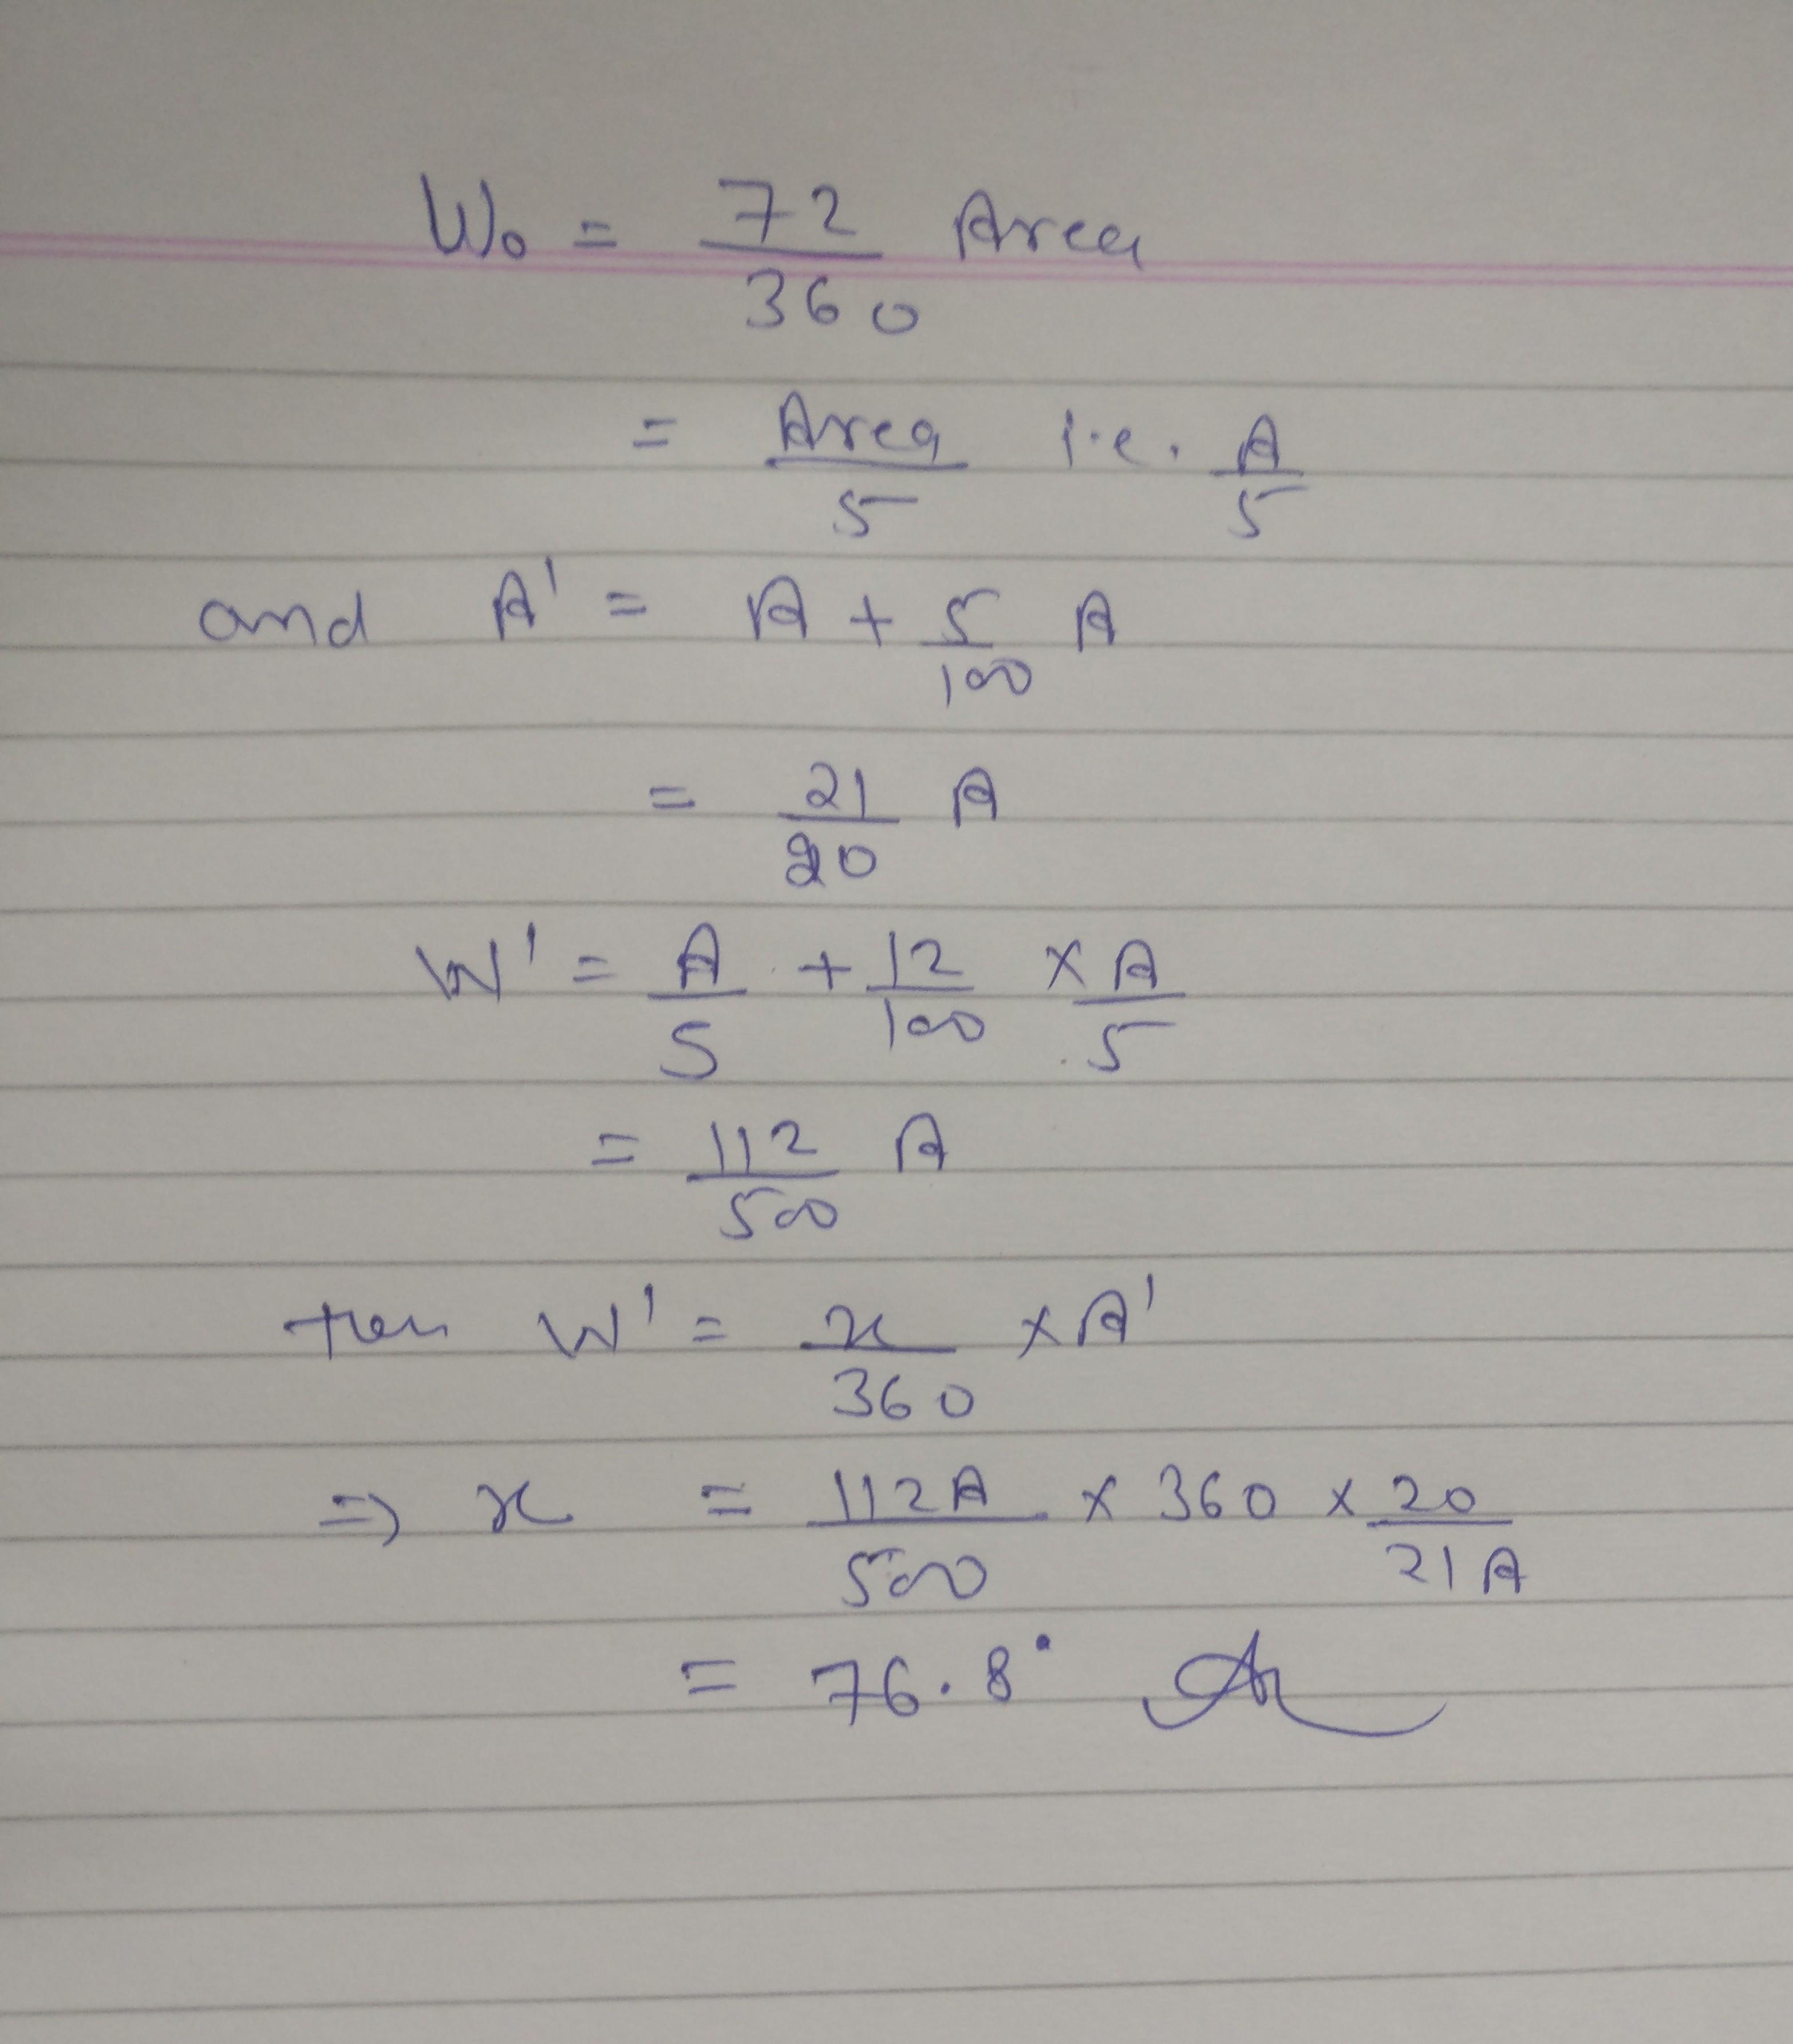 W₀ = 72/360 Area
= Area/5 i.e. A/5
and A' = A + 5/100 A
= 21/20 A
W' = A/5 + 12/100 × A/5
= 112/500 A
then W' = x/360 × A'
⇒ x = 112A/500 × 360 × 20/21A
= 76.8°